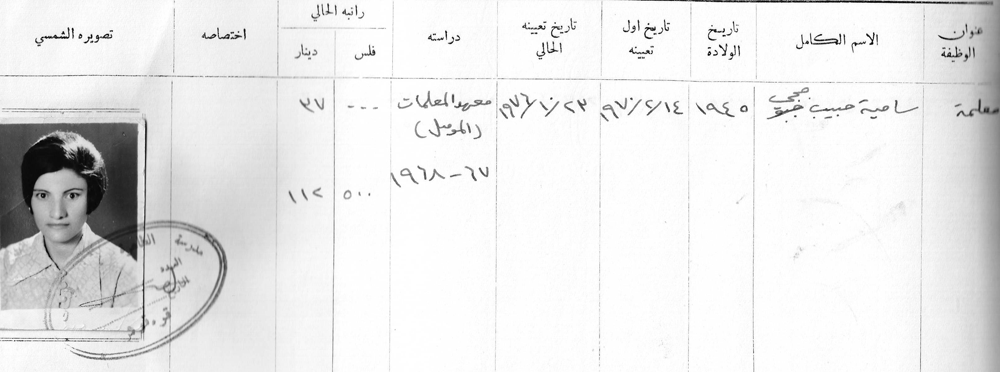 عنوان الوظيفة
الاسم الكامل
تاريخ الولادة
تاريخ اول تعيينه
تاريخ تعيينه الحالي
دراسته
راتبه الحالي
فلس
دينار
اختصاصه
تصويره الشمسي
معلمة
سامية حبيب ججي
١٩٤٥
١٩٧٠/٢/١٤
١٩٧٦/١٠/٢٣
معهد المعلمات
(الموصل)
٦٧-١٩٦٨
---
٣٧
٥٠٠
١١٢
مدرسة